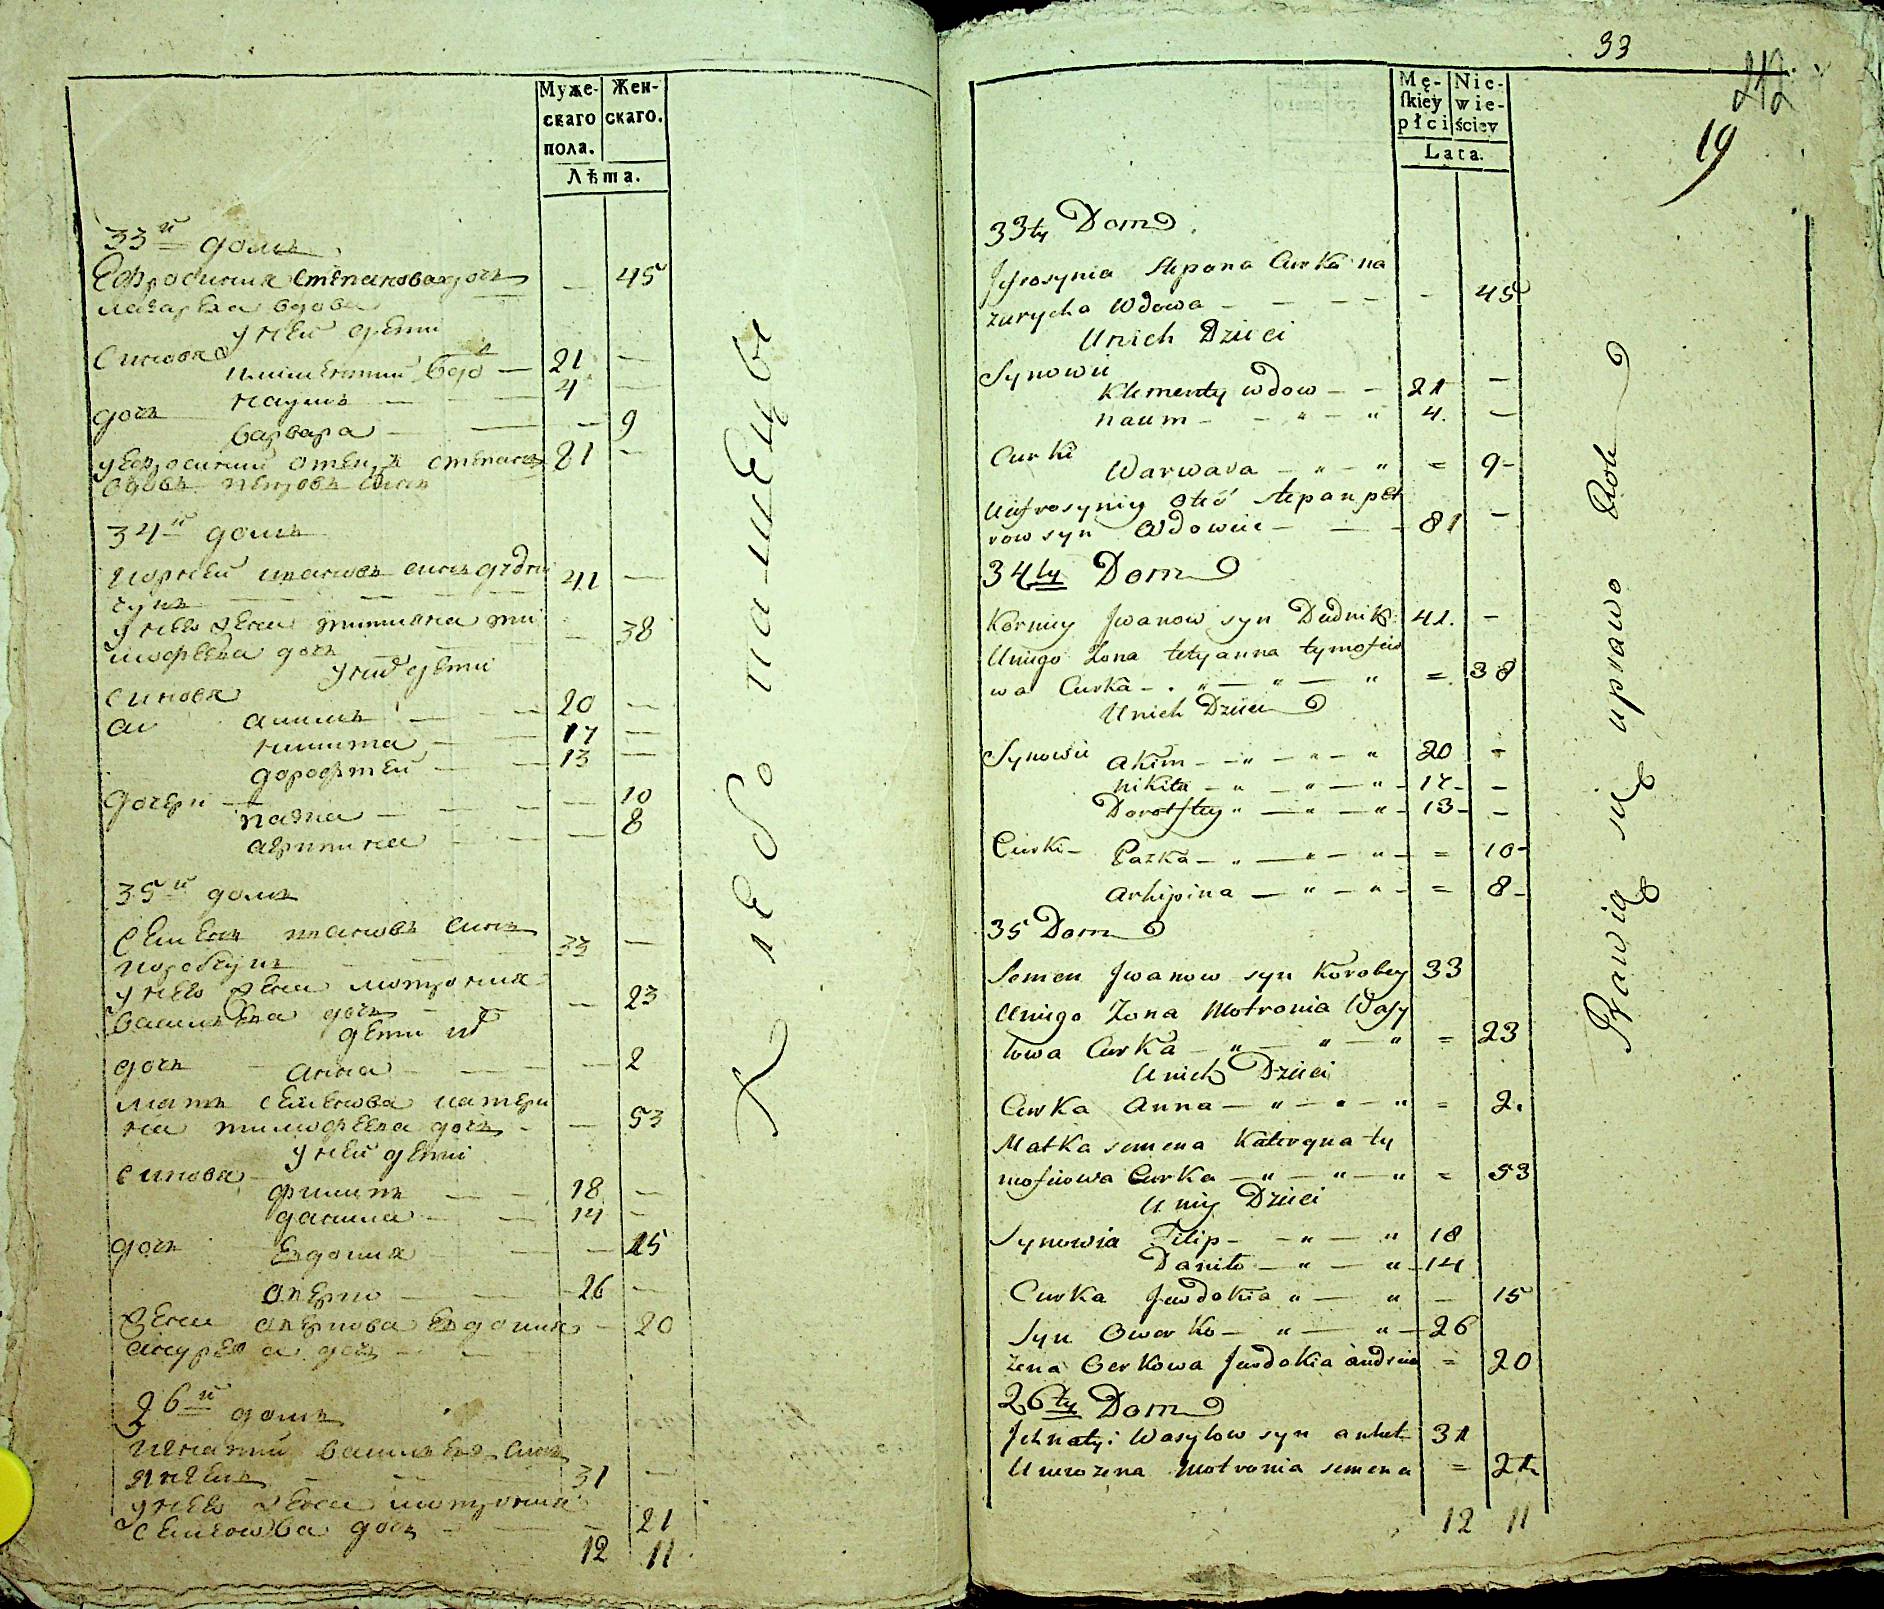 Муже-
скаго
пола.
Жен-
скаго.
Лѣта.
33й домъ
Ефросиния степанова дочъ — 45
лазарева вдова
у ней дети
Синовя
климентий вдо — 21 —
наумъ — 4 —
дочъ
варвара — — 9
у ефросинии отецъ степанъ 81 —
вдовъ петровъ синъ
34й домъ
Корней ивановъ синъ дудни 41 —
у нево жена татияна ти — 38
мофеева дочъ
у них дети
Синовя
акимъ — 20 —
никита — 17 —
дорофтей — 13 —
дочери — 10
пазка — 8
агрипина
35й домъ
Семенъ ивановъ синъ
33 —
у нево жена мотрония — 23
василева дочъ
дети их
дочъ анна — 2
мать семенова катери
на тимофеева дочъ — 53
у ней дети
Синовя
филипъ — 18 —
данила — 14 —
дочъ Евдокия — 15
оверко — 26 —
Жена оверкова Евдокия — 20
дочъ
26й домъ
игнатий василевъ синъ
31 —
у нево жена мотрония
семенова дочъ — 21
12 11
хлебопашецы
33
212
19
Mę-
skiey
płci
Nie-
wie-
ściey
Lata.
33ty Dom
Jefrosynia Stepana Curka na
zurycha Wdowa — — — — - 45
Unich Dzieci
Synowie
Klementy wdow — — 21 —
naum — — " — " 4. —
Curki
Warwara — " — " = 9-
Uiefrosyniy Otć stepan pet
row syn Wdowiec — — - 81 —
34ty Dom
Korniey Jwanow syn Dudnik 41. —
Uniego Zona tetyanna tymofieio
wa Curka — . " — " — " = 38
Unich Dzieci
Synowie akim — " — " — " 20 -
nikita — " — " — " - 17 - -
Doroftey " — " — " - 13 - -
Curki — Pazka — " — " — " - = 10-
arhipina — " — " - = 8-
35 Dom
Semen Jwanow syn Korobey 33
Uniego Zona Motronia Wasy
lowa Curka — " — " — " = 23
Unich Dzieci
Curka anna — " — " — " = 2.
Matka semena Kateryna ty
mofieiowa Curka — " — " — " = 53
U niey Dzieci
Synowia Filip — — " — " 18
Daniło — " — " - 14
Curka Jewdokia " — " — 15
Syn Owerko — " — " — 26
zena Oerkowa Jewdokia andreie = 20
26ty Dom
Jchnatyi Wasylow syn 31
Uniewo zena Motronia semena = 21
12 11
Bawią się uprawą Roli